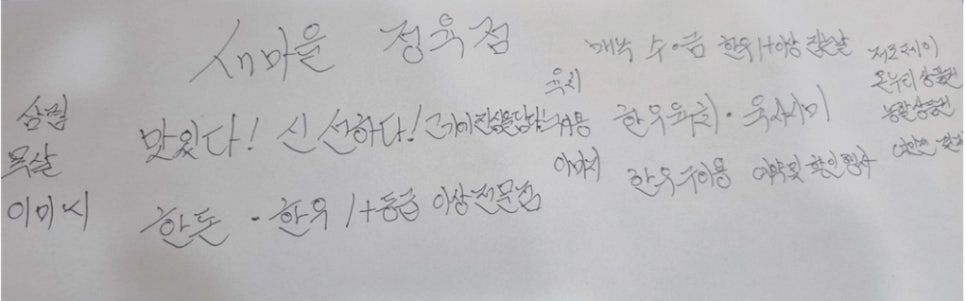 새마을 정육점
매주 수·금 한우 1+이상 잡는날
삼겹
목살
이미지
맛있다! 신선하다! 고기에 진심을 담다!
한돈 · 한우 1+등급 이상 전문점
육회
구이용
이미지
한우육회 · 육사시미
한우구이용 예약 및 할인행사
제로페이
온누리상품권
농할상품권